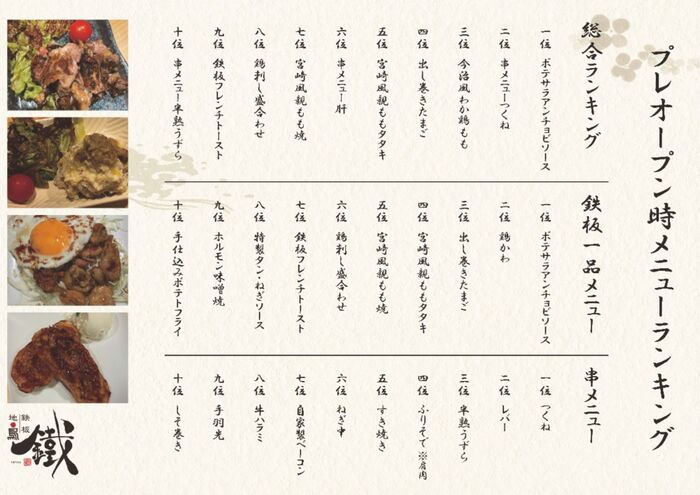 プレオープン時メニューランキング
総合ランキング
一位 ポテサラアンチョビソース
二位 串メニューつくね
三位 今治風わか鶏もも
四位 出し巻きたまご
五位 宮崎風親ももタタキ
六位 串メニュー肝
七位 宮崎風親もも焼
八位 鶏刺し盛合わせ
九位 鉄板フレンチトースト
十位 串メニュー半熟うずら
鉄板一品メニュー
一位 ポテサラアンチョビソース
二位 鶏かわ
三位 出し巻きたまご
四位 宮崎風親ももタタキ
五位 宮崎風親もも焼
六位 鶏刺し盛合わせ
七位 鉄板フレンチトースト
八位 特製タン・ねぎソース
九位 ホルモン味噌焼
十位 手仕込みポテトフライ
串メニュー
一位 つくね
二位 レバー
三位 半熟うずら
四位 ふりそで※肩肉
五位 すき焼き
六位 ねぎ中
七位 自家製ベーコン
八位 牛ハラミ
九位 手羽先
十位 しそ巻き
鉄板
地鳥
鐵